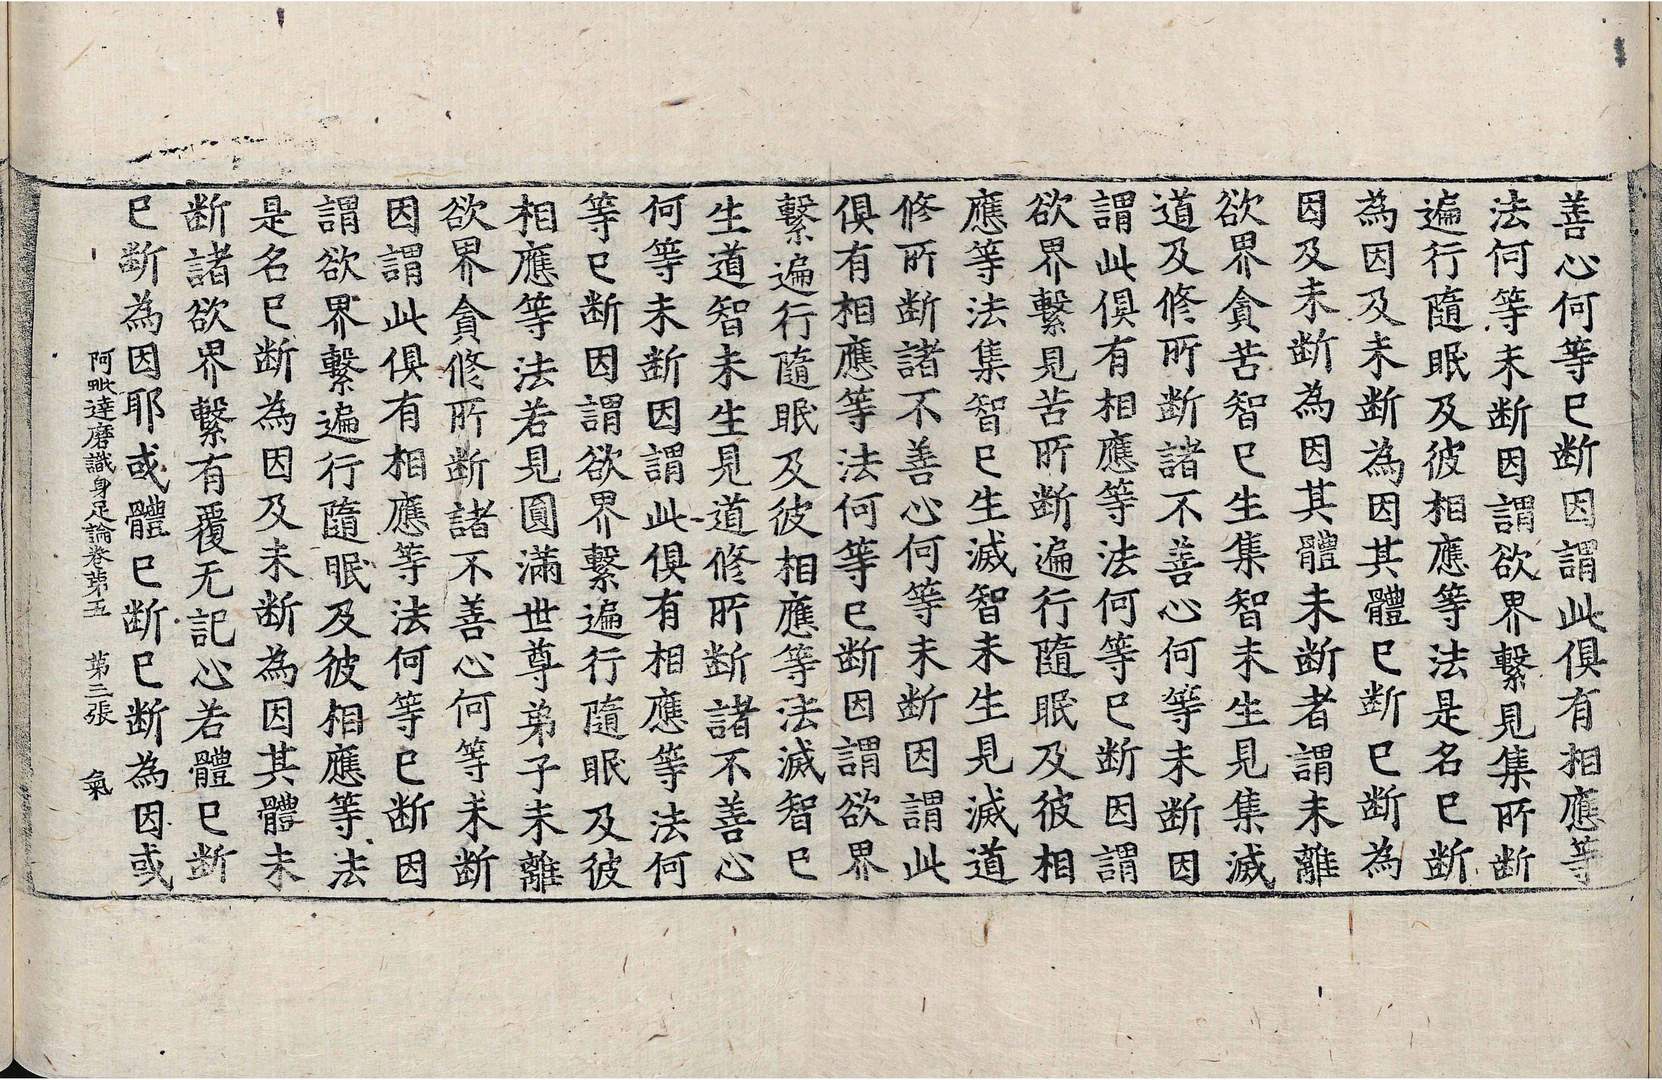 善心何等已断因謂此俱有相應等
法何等未断因謂欲界繫見集所断
遍行隨眠及彼相應等法是名已断
為因及未断為因其體已断已断為
因及未断為因其體未断者謂未離
欲界貪苦智已生集智未生見集滅
道及修所断諸不善心何等未断因
謂此俱有相應等法何等已断因謂
欲界繫見苦所断遍行隨眠及彼相
應等法集智已生滅智未生見滅道
修所断諸不善心何等未断因謂此
俱有相應等法何等已断因謂欲界
繫遍行隨眠及彼相應等法滅智已
生道智未生見道修所断諸不善心
何等未断因謂此俱有相應等法何
等已断因謂欲界繫遍行隨眠及彼
相應等法若見圓滿世尊弟子未離
欲界貪修所断諸不善心何等未断
因謂此俱有相應等法何等已断因
謂欲界繫遍行隨眠及彼相應等法
是名已断為因及未断為因其體未
断諸欲界繫有覆无記心若體已断
已断為因耶或體已断已断為因或
阿毗達磨識身足論卷第五 第三張 氣